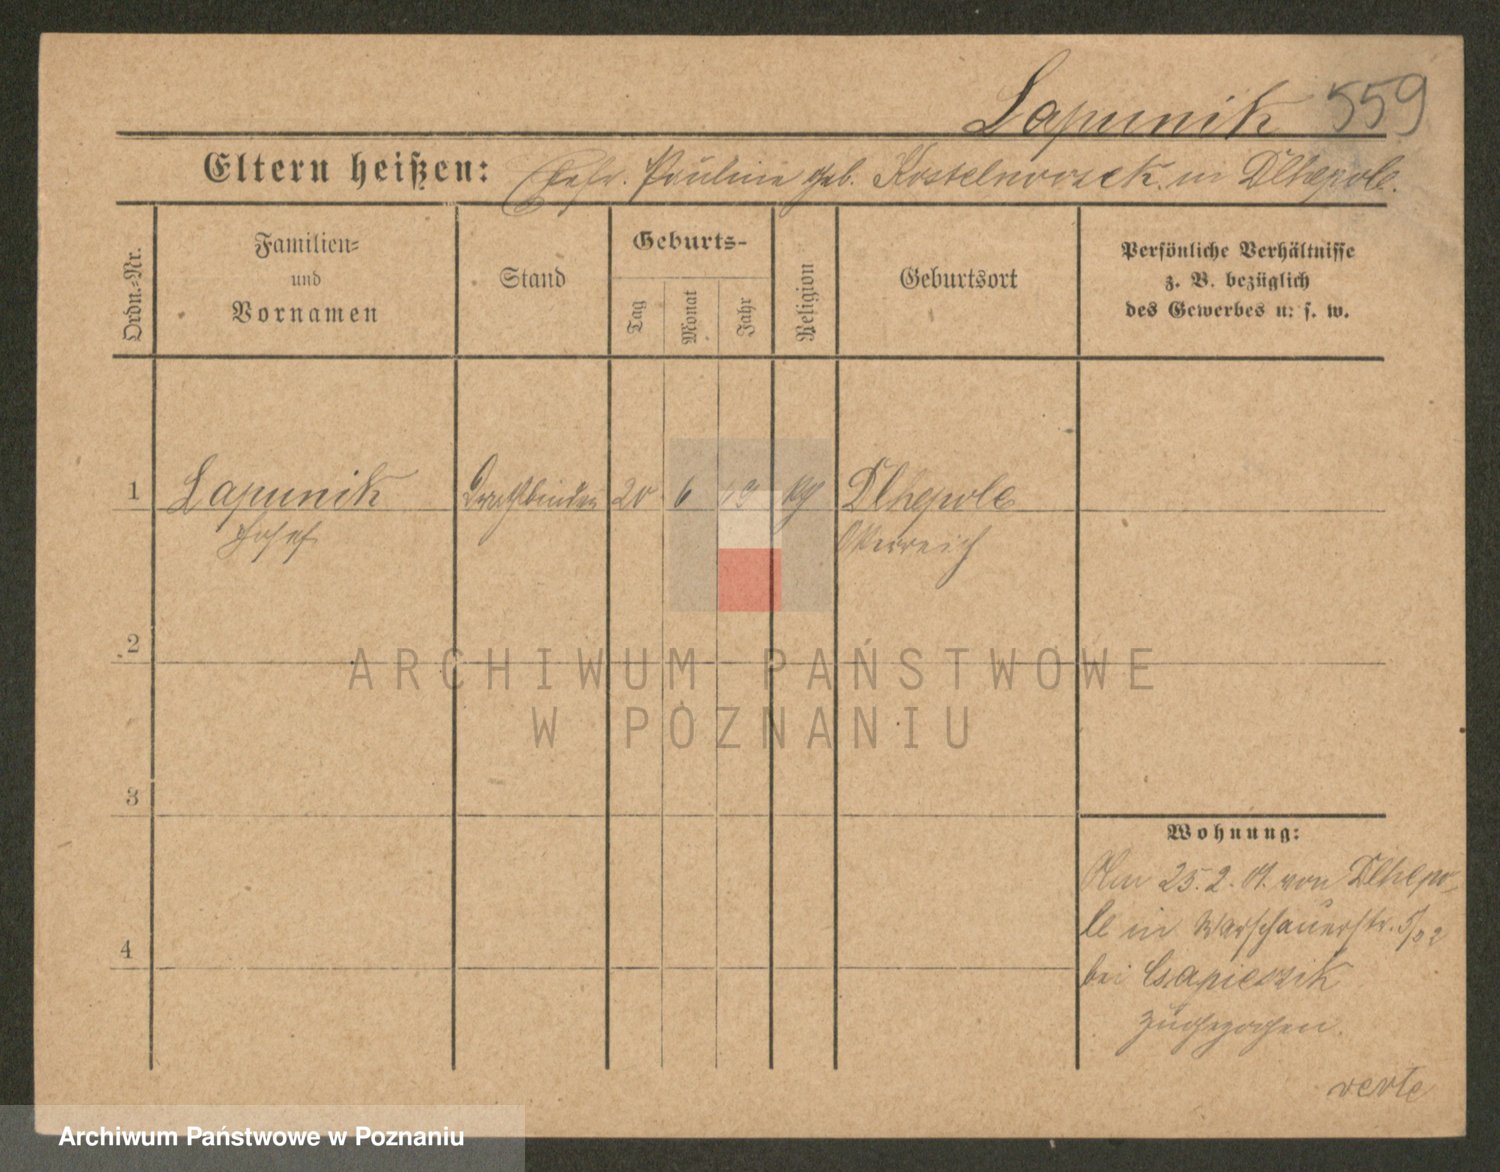 Lapunik 559
Eltern heißen: Josef. Pauline geb. Kostelnorzek. in Dlhepole.
Ordn.-Nr.
Familien-
und
Vornamen
Stand
Geburts-
Tag
Monat
Jahr
Religion
Geburtsort
Persönliche Verhältnisse
z. B. bezüglich
des Gewerbes u. s. w.
1 Lapunik Drathbinder 20 6 kg Dlhepole
Josef Österreich
2
3
4
Wohnung:
Am 25. 2. 01. von Dlhepo-
le in Warschauerstr. 5/02
bei Csapieczik
zugezogen.
verte
ARCHIWUM PAŃSTWOWE
W POZNANIU
Archiwum Państwowe w Poznaniu